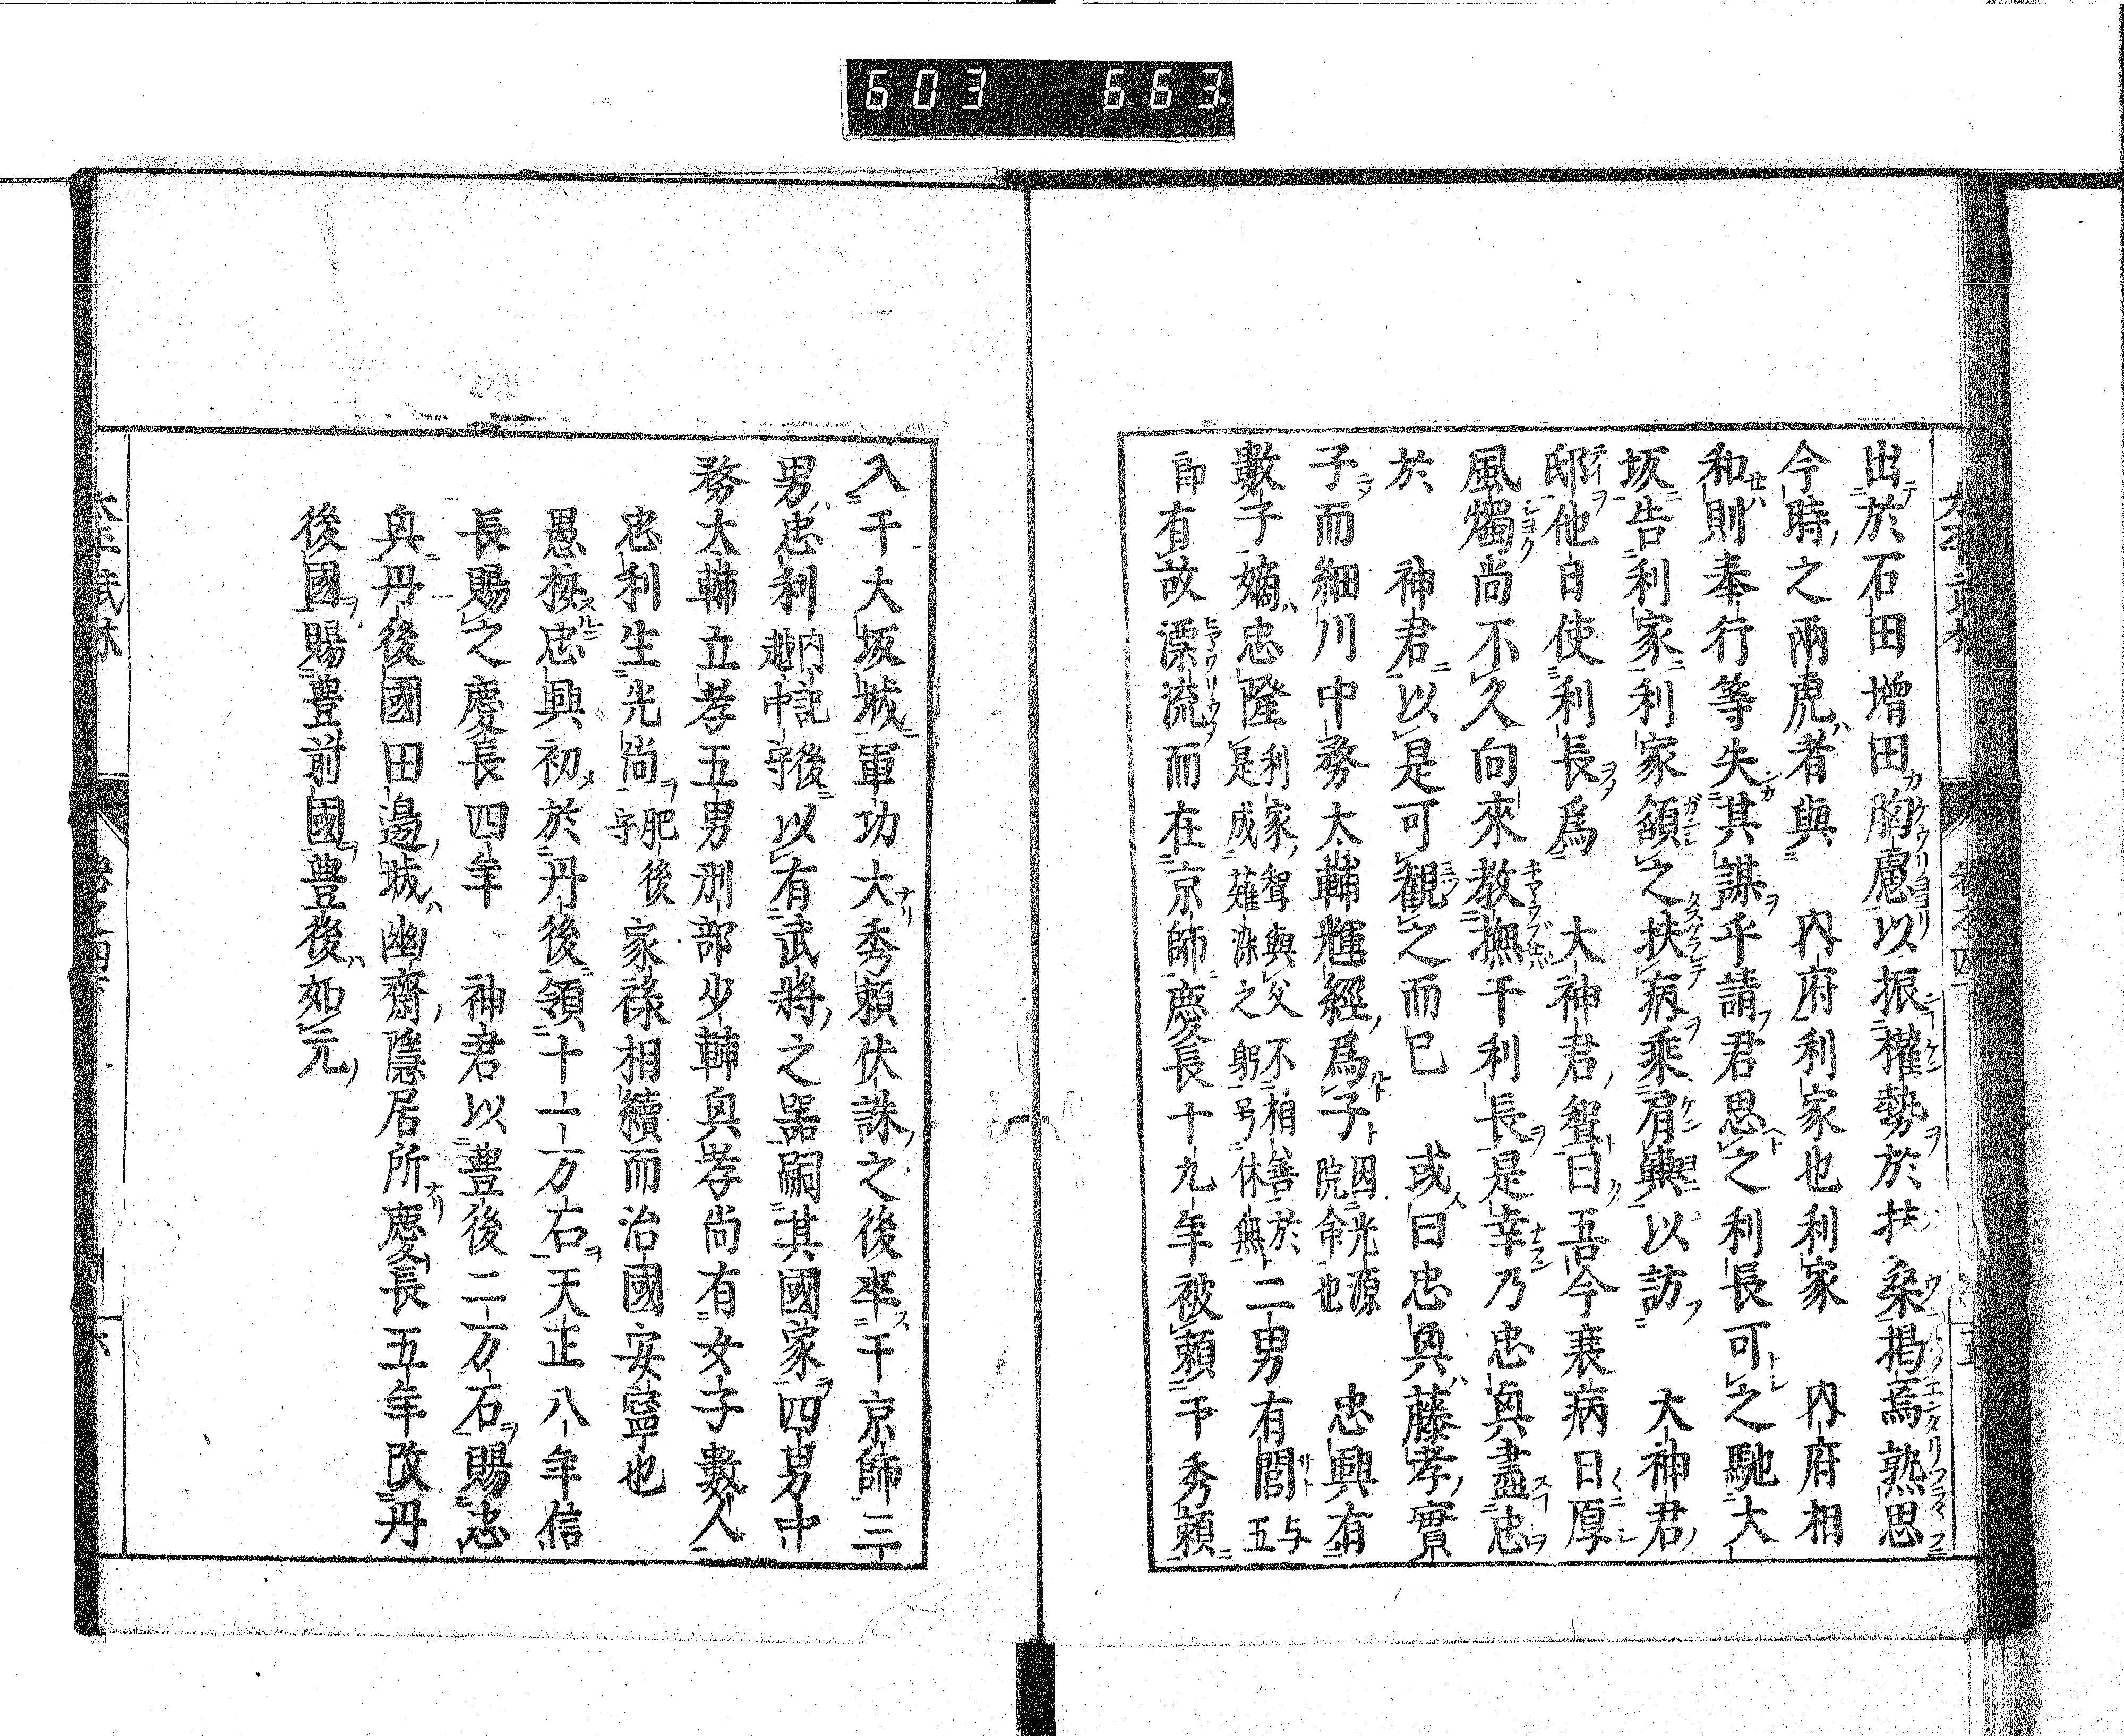 603 663
出於石田增田胸慮以振權勢於扶桑揭焉熟思
今時之兩虎者與　內府利家也利家　內府相
和則奉行等失其謀乎請君思之利長可之馳大
坂告利家利家頷之扶病乘肩輿以訪　大神君
邸他日使利長爲　大神君聟曰吾今衰病日厚
風燭尚不久向來教撫于利長是幸乃忠與盡忠
於　神君以是可觀之而已　或曰忠與藤孝實
子而細川中務太輔輝經爲子因光源院命也　忠興有
數子嫡忠隆利家聟與父不相善於是成薙染之躬号休無二男有閻与五
郎有故漂流而在京師慶長十九年被賴于秀賴
入于大坂城軍功大秀賴伏誅之後卒于京師三
男忠利內記後越中守以有武將之器嗣其國家四男中
務大輔立孝五男刑部少輔與孝尚有女子數人
忠利生光尚肥後守家祿相續而治國安寧也
愚按忠興初於丹後領十一万石天正八年信
長賜之慶長四年　神君以豊後二万石賜忠
與丹後國田邊城幽齋隱居所慶長五年改丹
後國賜豊前國豊後如元